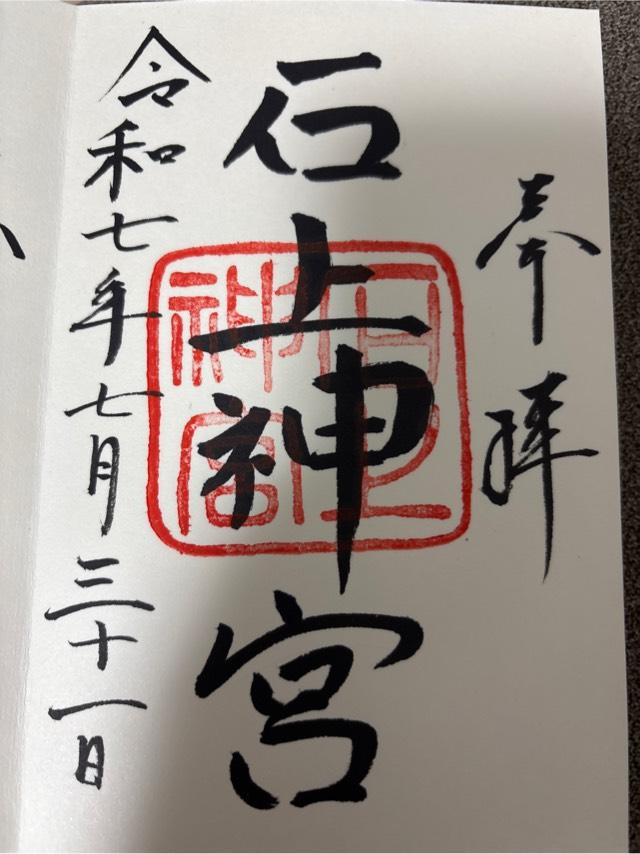 奉拝
石上神宮
令和七年七月三十一日
石上
神宮